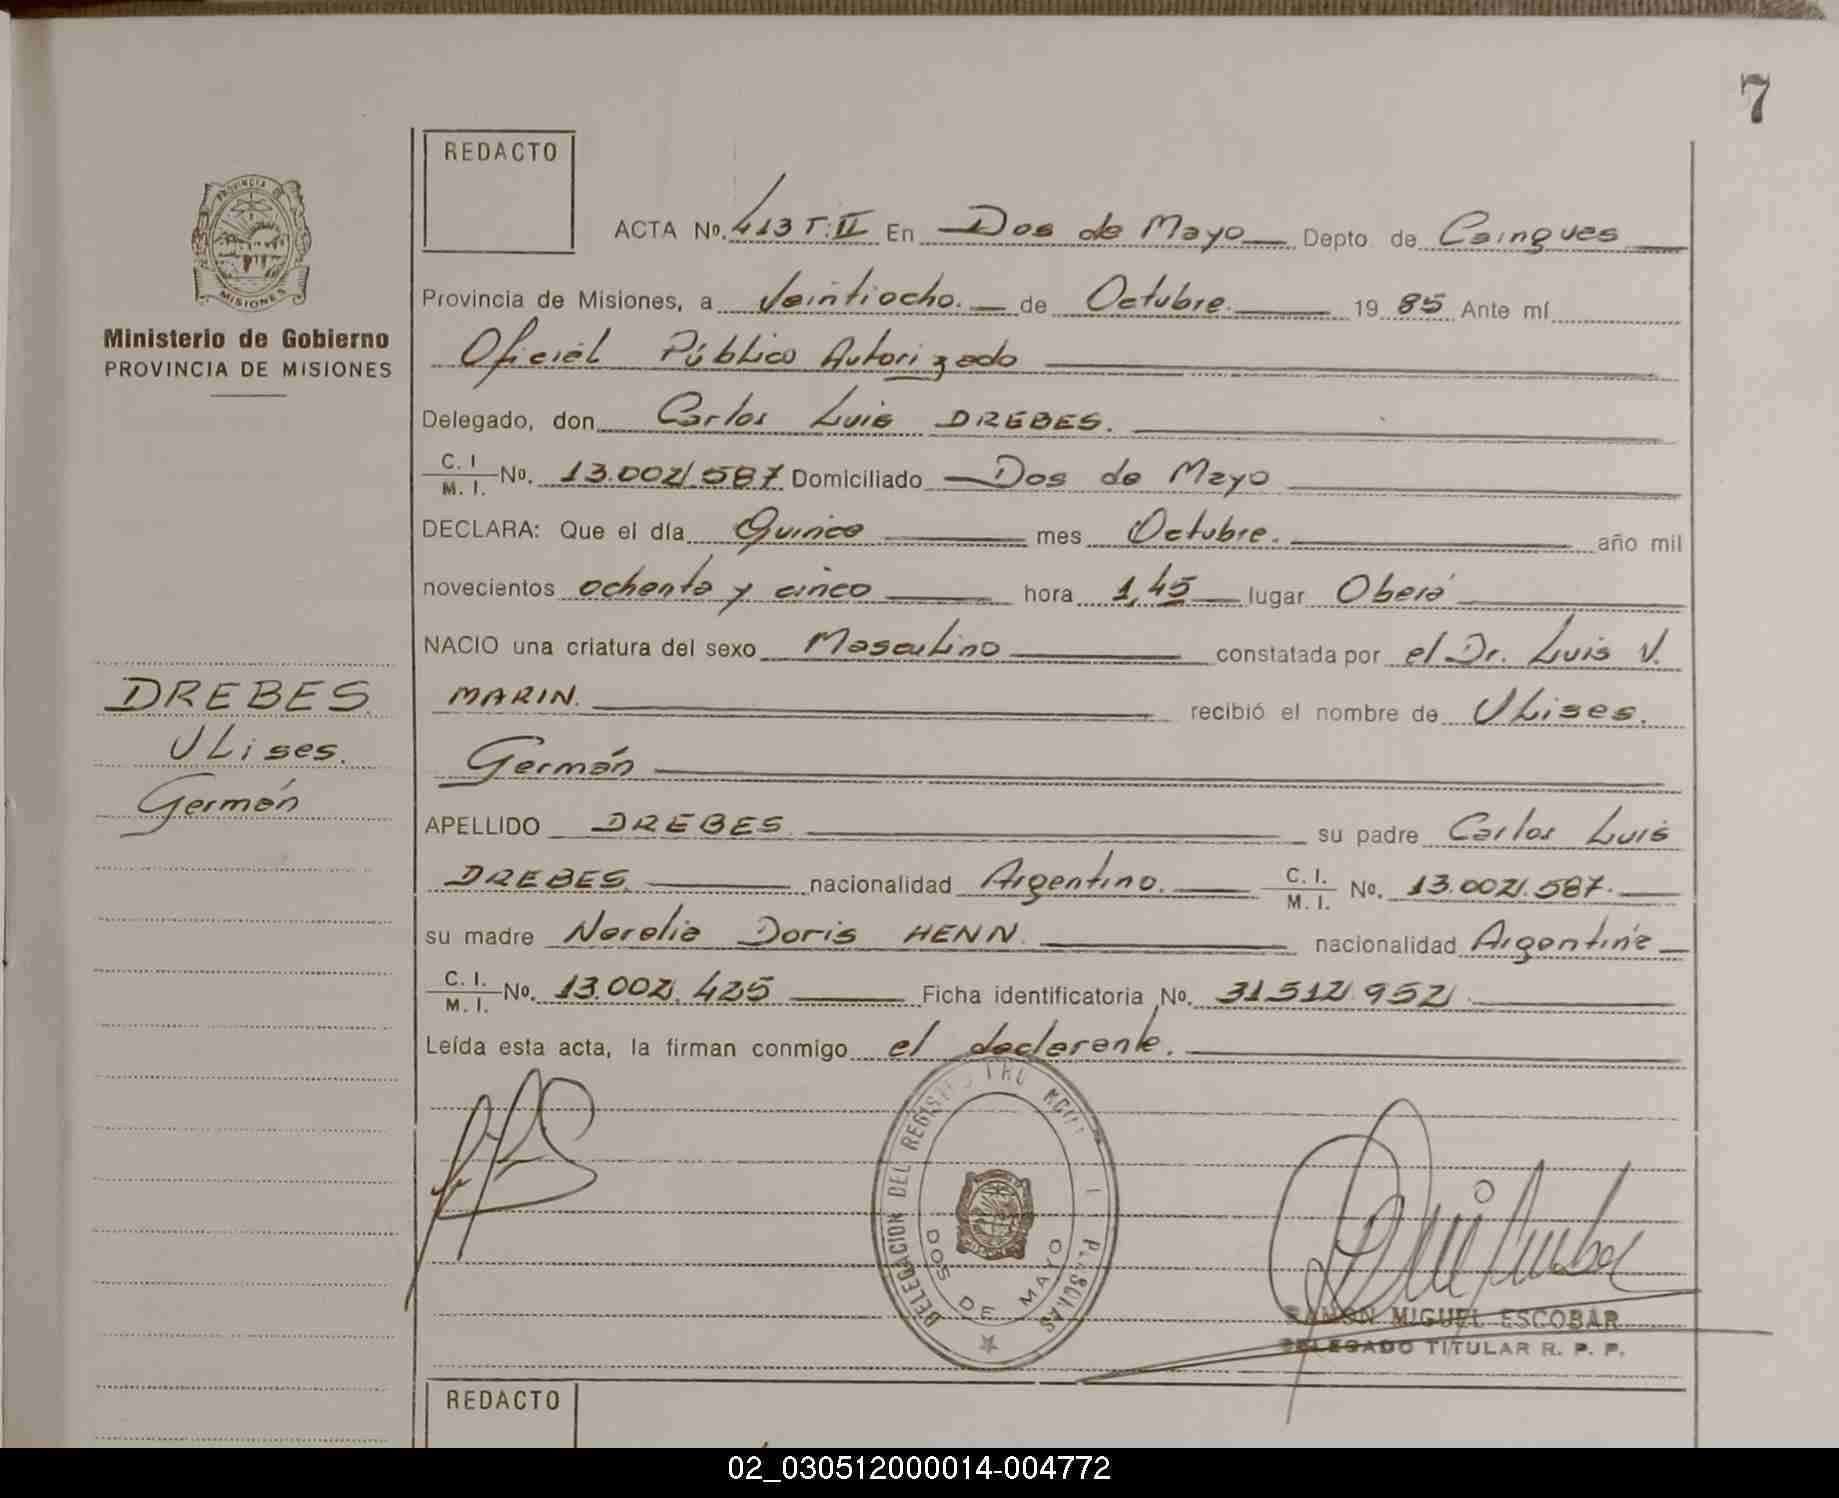 7
REDACTO
PROVINCIA DE
MISIONES
Ministerio de Gobierno
PROVINCIA DE MISIONES
ACTA No. 413 T: II En Dos de Mayo Depto de Cainguas
Provincia de Misiones, a Veintiocho. de Octubre. 19 85 Ante mí
Oficial Público Autorizado
Delegado, don Carlos Luis DREBES.
C. I. / M. I. No. 13.002.587 Domiciliado Dos de Mayo
DECLARA: Que el día Quince mes Octubre. año mil
novecientos ochenta y cinco hora 1,45 lugar Oberá
NACIO una criatura del sexo Masculino constatada por el Dr. Luis V.
MARIN. recibió el nombre de Ulises.
Germán
APELLIDO DREBES. su padre Carlos Luis
DREBES. nacionalidad Argentino. C. I. / M. I. No. 13.002.587.
su madre Norelia Doris HENN. nacionalidad Argentina
C. I. / M. I. No. 13.002.425 Ficha identificatoria No. 31.512.952.
Leída esta acta, la firman conmigo el declarante.
DREBES
Ulises.
Germán
DELEGACION DEL REGISTRO
DOS DE MAYO
RAMON MIGUEL ESCOBAR
DELEGADO TITULAR R. P. P.
REDACTO
02_030512000014-004772